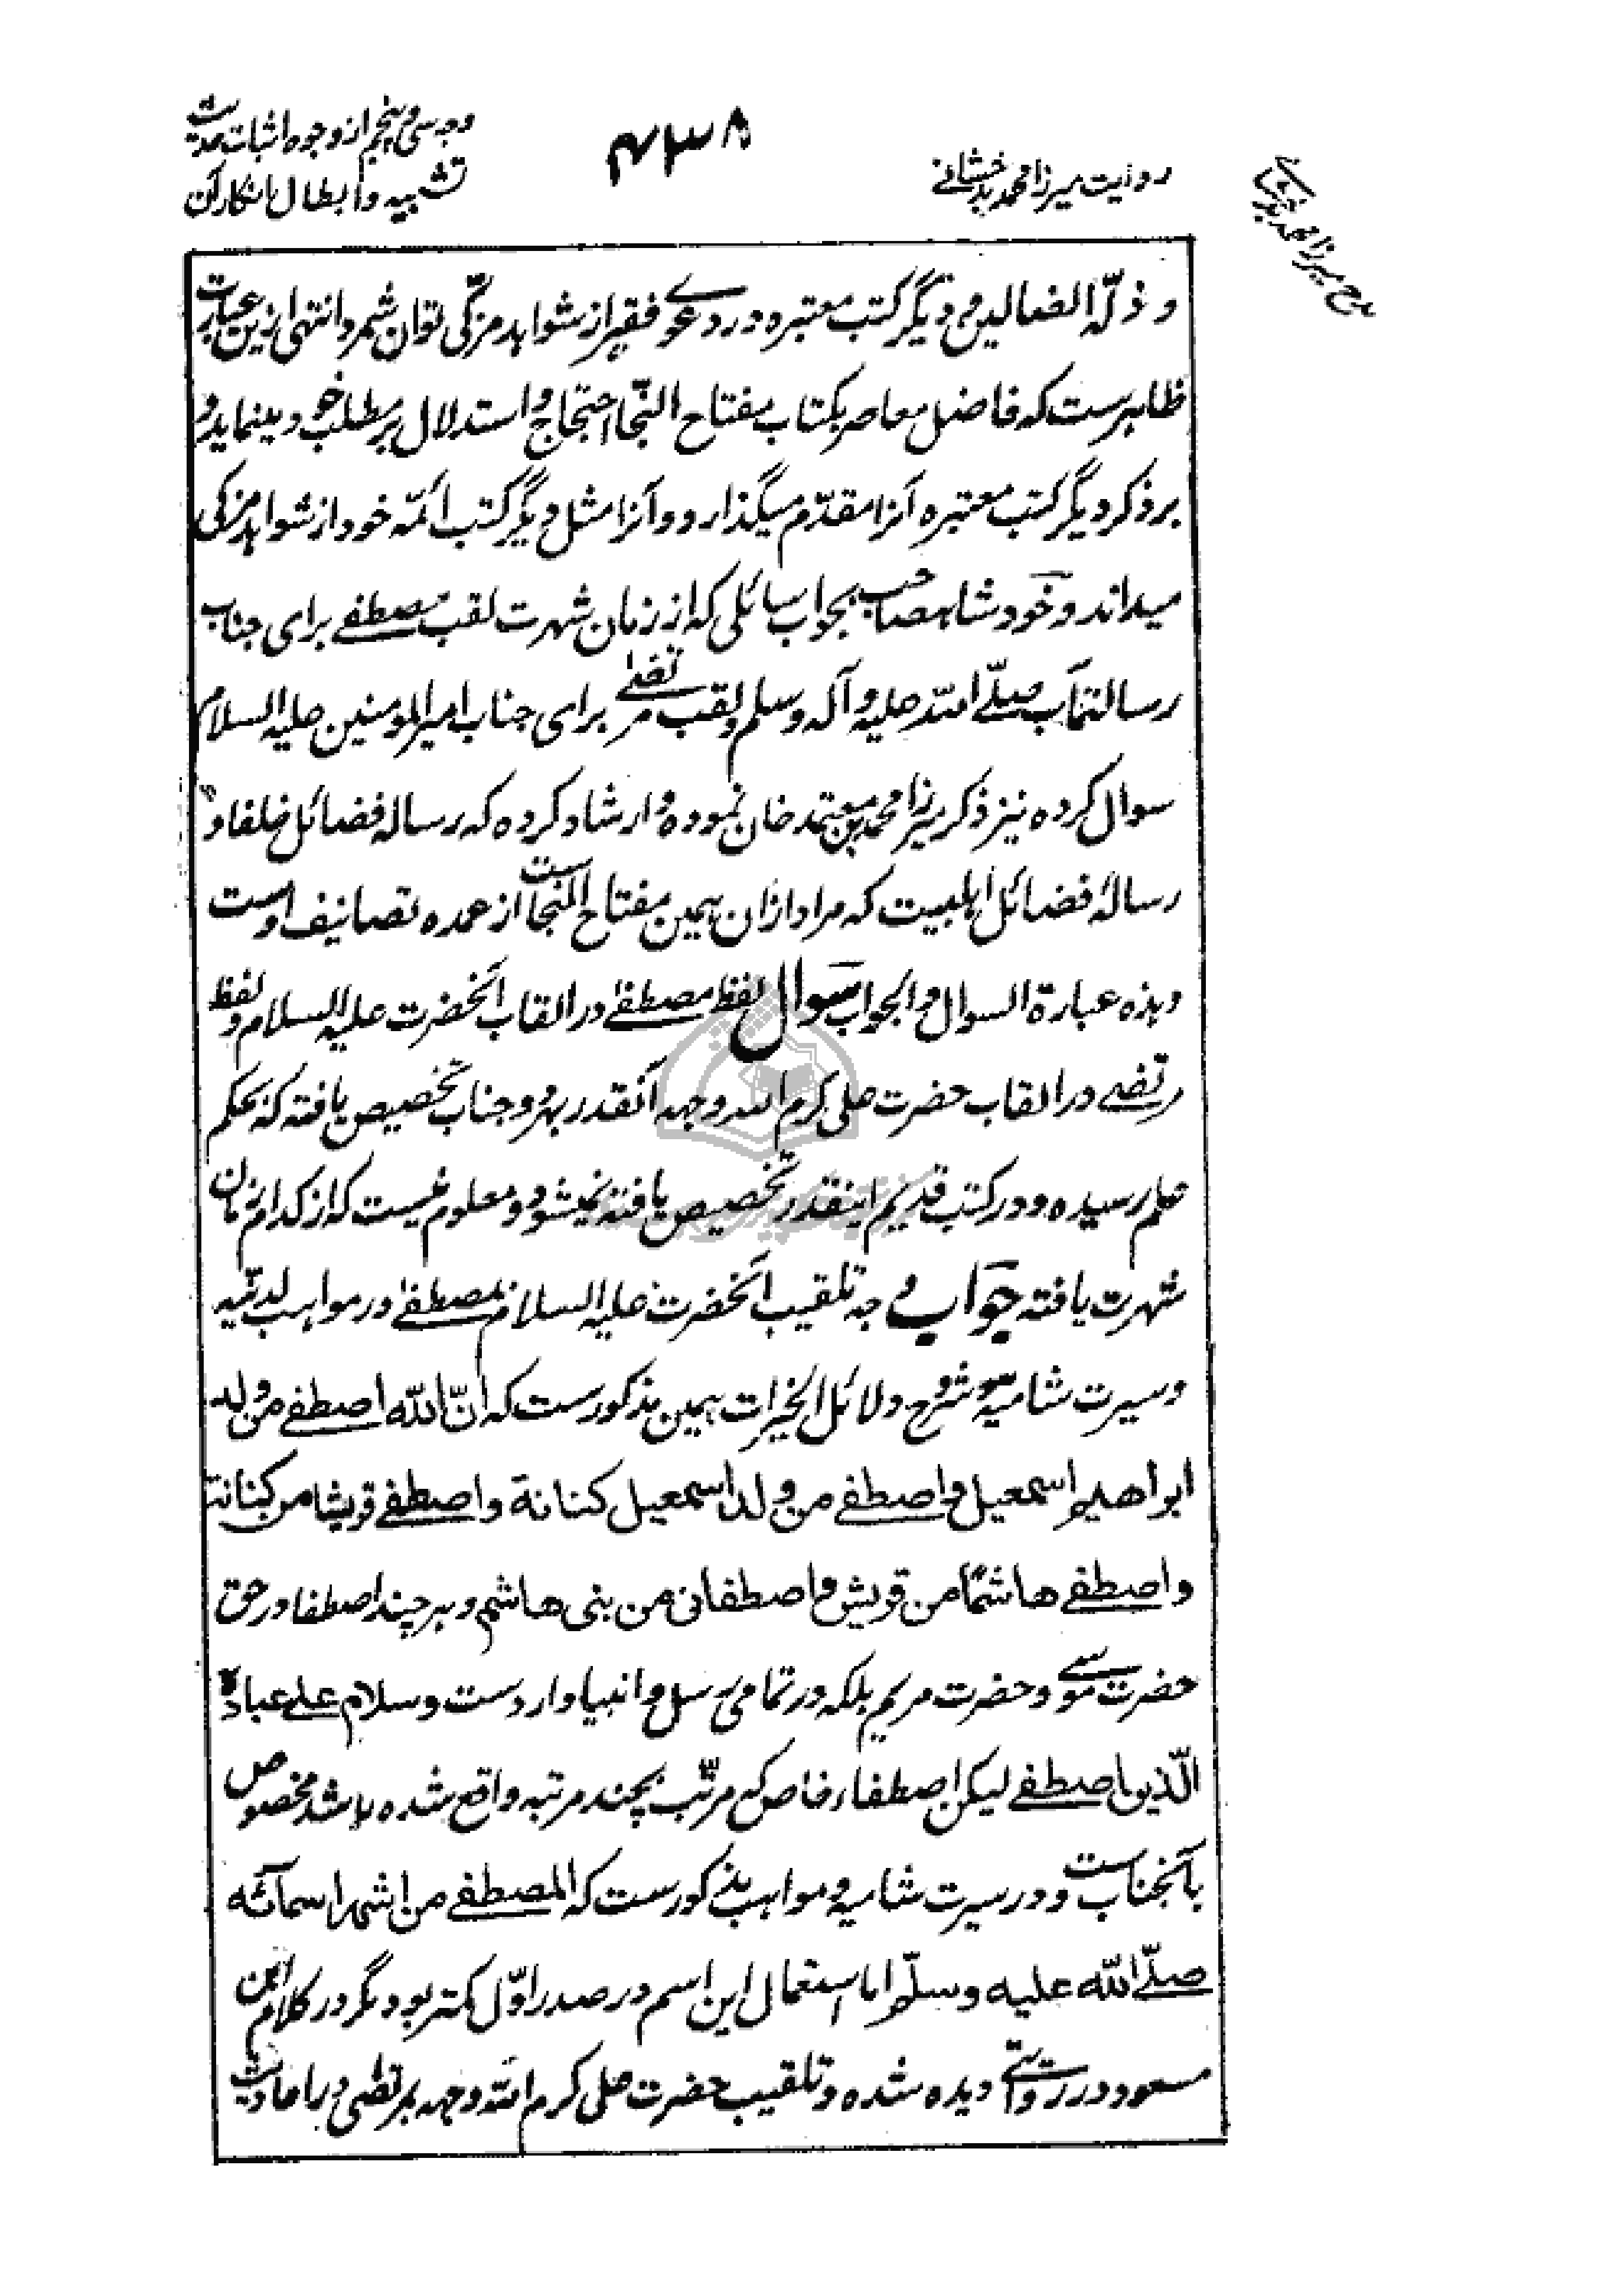 روایت میرزا محمد بدخشانی
۴۳۸
وجه سی و پنجم از وجوه اثبات حدیث
تشبیه و ابطال انکار آن
مدح میرزا محمد بدخشانی
و ذلّة الضالین و دیگر کتب معتبره در دعوی فقیر از شواهد مزکّی توان شمرد انتهی ازین عبارت
ظاهرست که فاضل معاصر بکتاب مفتاح النّجا احتجاج و استدلال بر مطلب خود مینماید و
بر ذکر دیگر کتب معتبره آنرا مقدّم میگذارد و آنرا مثل دیگر کتب ائمّه خود از شواهد مزکی
میداند و خود شاهصاحب بجواب سائلی که از زمان شهرت لقب مصطفی برای جناب
رسالتمآب صلّی اللّه علیه و آله و سلم و لقب مرتضی برای جناب امیر المومنین علیه السلام
سوال کرده نیز ذکر میرزا محمد بن معتمد خان نموده و ارشاد کرده که رساله فضائل خلفا و
رسالهٔ فضائل اهلبیت که مراد ازان همین مفتاح النجاست از عمده تصانیف اوست
و هذه عبارة السوال و الجواب سوال لفظ مصطفی در القاب آنحضرت علیه السلام و لفظ
مرتضی در القاب حضرت علی کرم الله وجهه آنقدر بهر دو جناب تخصیص یافته که بحکم
علم رسیده و در کتب قدیم اینقدر تخصیص یافته نمیشود و معلوم نیست که از کدام زمان
شهرت یافته جواب وجه تلقیب آنحضرت علیه السلام بمصطفی در مواهب لدنّیه
و سیرت شامیه و شروح دلائل الخیرات همین مذکورست که انّ اللّه اصطفی من ولد
ابراهیم اسمعیل و اصطفی من ولد اسمعیل کنانة و اصطفی قریشا من کنانة
و اصطفی هاشمًا من قریش و اصطفانی من بنی هاشم و هر چند اصطفا در حق
حضرت موسی و حضرت مریم بلکه در تمامی رسل و انبیا واردست و سلام علی عباده
الّذین اصطفی لیکن اصطفاء خاص که مرتّب بچند مرتبه واقع شده باشد مخصوص
بآنجنابست و در سیرت شامیه و مواهب مذکورست که المصطفی من اشهر اسمائه
صلّی اللّه علیه و سلّم اما استعمال این اسم در صدر اوّل کمتر بود مگر در کلام ابن
مسعود در روایتی دیده شده و تلقیب حضرت علی کرم اللّه وجهه بمرتضی در احادیث